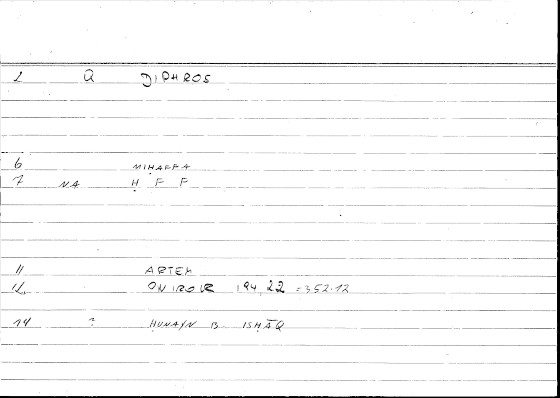 1 Q DIPHROS
6 MIḤAFFA
7 NA Ḥ F F
11 ARTEM
12 ONIROCR 194,22 = 352.12
14 ? ḤUNAYN B ISḤĀQ